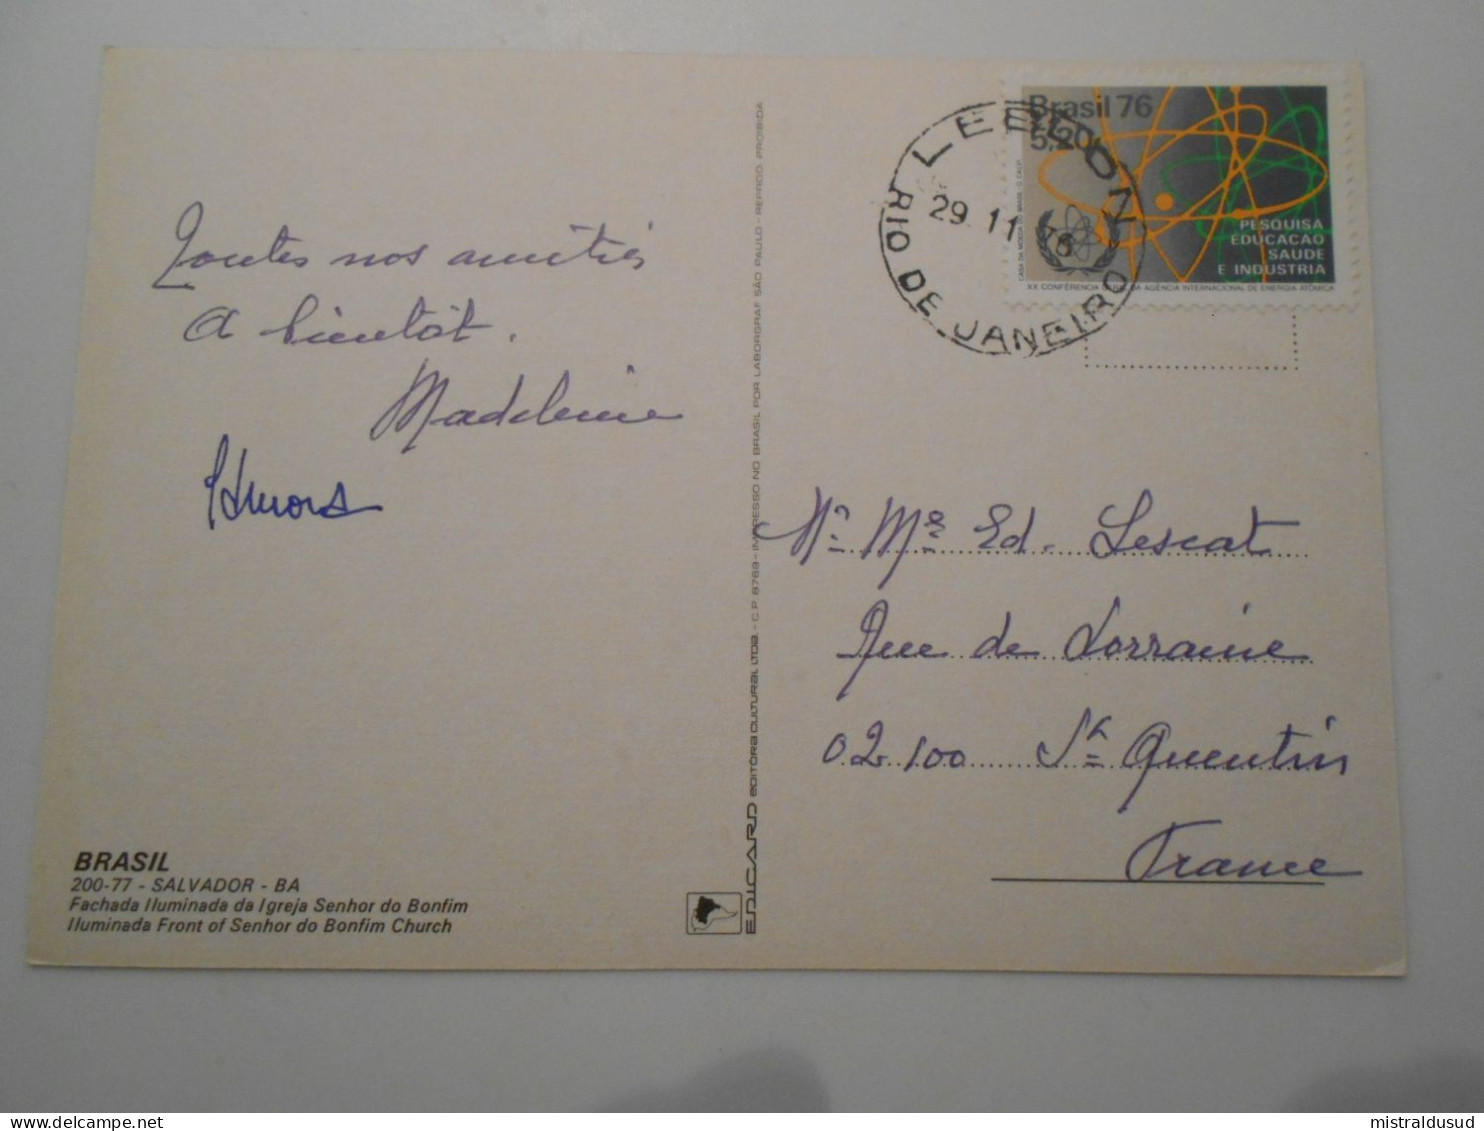 Toutes nos amitiés
A bientôt.
Madeleine
BRASIL
200-77 - SALVADOR - BA
Fachada Iluminada da Igreja Senhor do Bonfim
Iluminada Front of Senhor do Bonfim Church
EDICARD EDITORA CULTURAL LTDA - C.P. 8769 - IMPRESSO NO BRASIL POR LABORGRAF SÃO PAULO - REPROD. PROIBIDA
Brasil 76
5,20
PESQUISA
EDUCACAO
SAUDE
E INDUSTRIA
CASA DA MOEDA DO BRASIL
XX CONFERÊNCIA DA AGÊNCIA INTERNACIONAL DE ENERGIA ATÔMICA
LEBLON
29 11 76
RIO DE JANEIRO
Mr Me Ed. Lescat
Rue de Lorraine
02100 St Quentin
France
mistraldusud